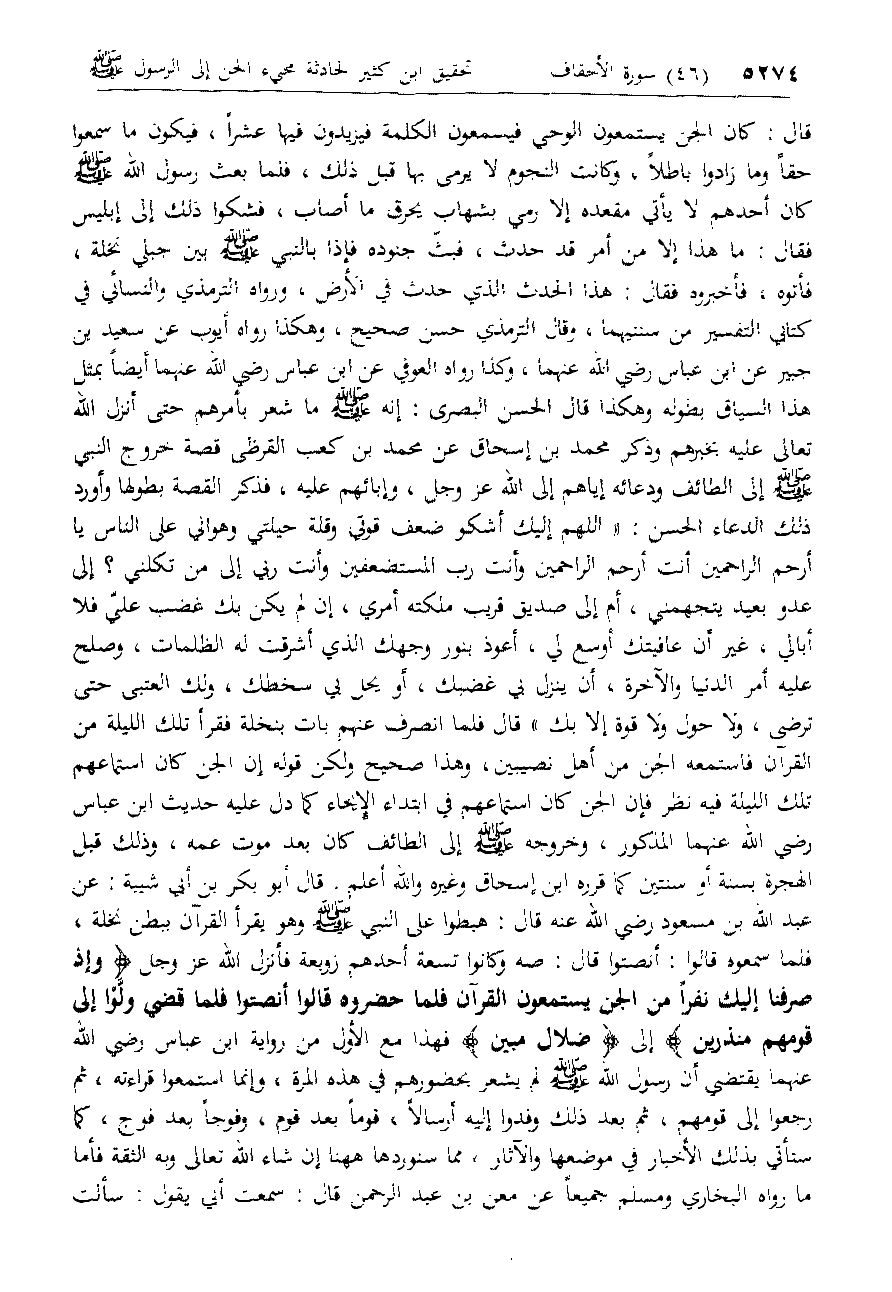 ٥٢٧٤ (٤٦) سورة الأحقاف تحقيق ابن كثير لحادثة مجيء الجن إلى الرسول ﷺ
قال : كان الجن يستمعون الوحي فيسمعون الكلمة فيزيدون فيها عشراً ، فيكون ما سمعوا
حقاً وما زادوا باطلاً ، وكانت النجوم لا يرمى بها قبل ذلك ، فلما بعث رسول الله ﷺ
كان أحدهم لا يأتي مقعده إلا رمي بشهاب يحرق ما أصاب ، فشكوا ذلك إلى إبليس
فقال : ما هذا إلا من أمر قد حدث ، فبثّ جنوده فإذا بالنبي ﷺ بين جبلي نخلة ،
فأتوه ، فأخبروه فقال : هذا الحدث الذي حدث في الأرض ، ورواه الترمذي والنسائي في
كتابي التفسير من سننيهما ، وقال الترمذي حسن صحيح ، وهكذا رواه أيوب عن سعيد بن
جبير عن ابن عباس رضي الله عنهما ، وكذا رواه العوفي عن ابن عباس رضي الله عنهما أيضاً بمثل
هذا السياق بطوله وهكذا قال الحسن البصرى : إنه ﷺ ما شعر بأمرهم حتى أنزل الله
تعالى عليه بخبرهم وذكر محمد بن إسحاق عن محمد بن كعب القرظى قصة خروج النبي
ﷺ إلى الطائف ودعائه إياهم إلى الله عز وجل ، وإبائهم عليه ، فذكر القصة بطولها وأورد
ذلك الدعاء الحسن : « اللهم إليك أشكو ضعف قوتي وقلة حيلتي وهواني على الناس يا
أرحم الراحمين أنت أرحم الراحمين وأنت رب المستضعفين وأنت ربي إلى من تكلني ؟ إلى
عدو بعيد يتجهمني ، أم إلى صديق قريب ملكته أمري ، إن لم يكن بك غضب عليّ فلا
أبالي ، غير أن عافيتك أوسع لي ، أعوذ بنور وجهك الذي أشرقت له الظلمات ، وصلح
عليه أمر الدنيا والآخرة ، أن ينزل بي غضبك ، أو يحل بي سخطك ، ولك العتبى حتى
ترضى ، ولا حول ولا قوة إلا بك » قال فلما انصرف عنهم بات بنخلة فقرأ تلك الليلة من
القرآن فاستمعه الجن من أهل نصيبين، وهذا صحيح ولكن قوله إن الجن كان استماعهم
تلك الليلة فيه نظر فإن الجن كان استماعهم في ابتداء الإيحاء كما دل عليه حديث ابن عباس
رضي الله عنهما المذكور ، وخروجه ﷺ إلى الطائف كان بعد موت عمه ، وذلك قبل
الهجرة بسنة أو سنتين كما قرره ابن إسحاق وغيره والله أعلم . قال أبو بكر بن أبي شيبة : عن
عبد الله بن مسعود رضي الله عنه قال : هبطوا على النبي ﷺ وهو يقرأ القرآن ببطن نخلة ،
فلما سمعوه قالوا : أنصتوا قال : صه وكانوا تسعة أحدهم زوبعة فأنزل الله عز وجل ﴿ وإذ
صرفنا إليك نفراً من الجن يستمعون القرآن فلما حضروه قالوا أنصتوا فلما قضي ولَّوْا إلى
قومهم منذرين ﴾ إلى ﴿ ضلال مبين ﴾ فهذا مع الأول من رواية ابن عباس رضي الله
عنهما يقتضي أن رسول الله ﷺ لم يشعر بحضورهم في هذه المرة ، وإنما استمعوا قراءته ، ثم
رجعوا إلى قومهم ، ثم بعد ذلك وفدوا إليه أرسالاً ، قوماً بعد قوم ، وفوجاً بعد فوج ، كما
ستأتي بذلك الأخبار في موضعها والآثار ، مما سنوردها ههنا إن شاء الله تعالى وبه الثقة فأما
ما رواه البخاري ومسلم جميعاً عن معن بن عبد الرحمن قال : سمعت أبي يقول : سألت